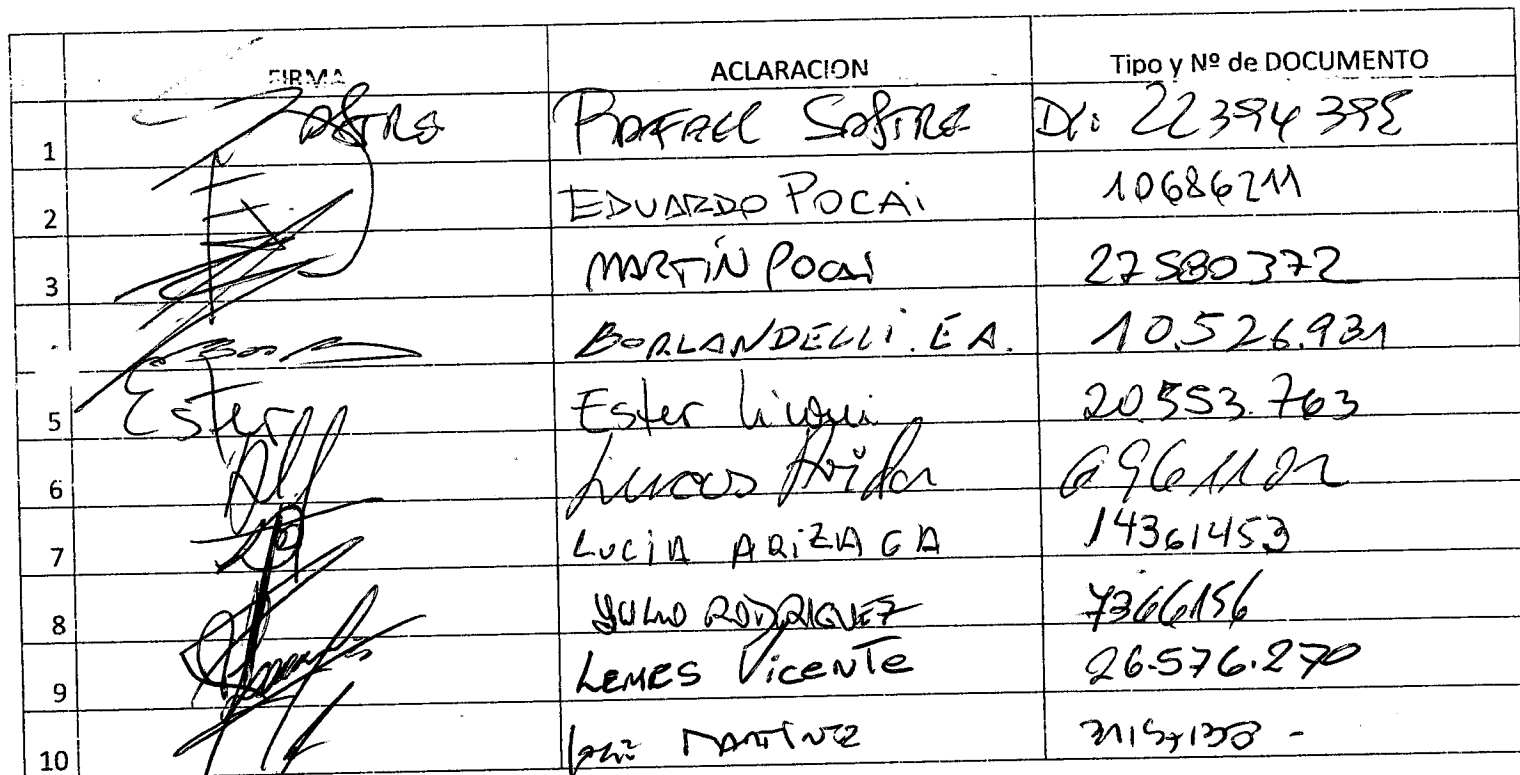 FIRMA ACLARACION Tipo y Nº de DOCUMENTO
1 Sastre RAFAEL SASTRE DNi 22394395
2 EDUARDO POCAi 10686211
3 MARTÍN POCAI 27580372
BORLANDELLI. E A. 10.526.931
5 Ester Ester 20.553.763
6 Lucas 6961102
7 LUCIA ARIZAGA 14361453
8 JULIO RODRIGUEZ 7366156
9 LEMES VicENTe 26.576.270
10 MARTINEZ